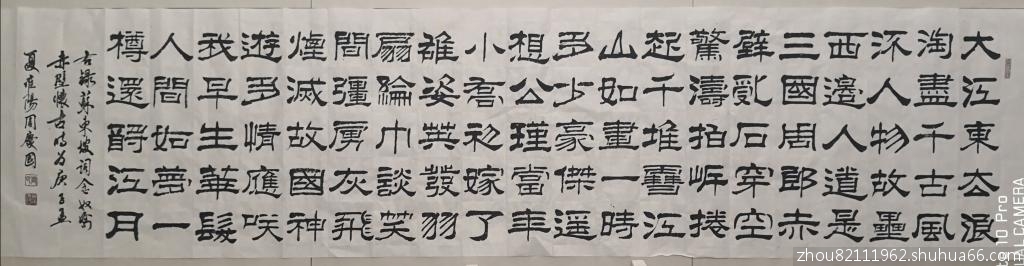 大江東去浪
淘盡千古風
流人物故壘
西邊人道是
三國周郎赤
壁乱石穿空
驚濤拍岸捲
起千堆雪江
山如畫一時
多少豪傑遥
想公瑾當年
小喬初嫁了
雄姿英發羽
扇綸巾談笑
間彊虜灰飛
煙滅故國神
遊多情應笑
我早生華髮
人間如夢一
樽還酹江月
右録蘇東坡詞念奴嬌
赤壁懷古時为庚子孟
夏淮陽周慶國
10 Pro
CAMERA
zhou82111962.shuhua66.com